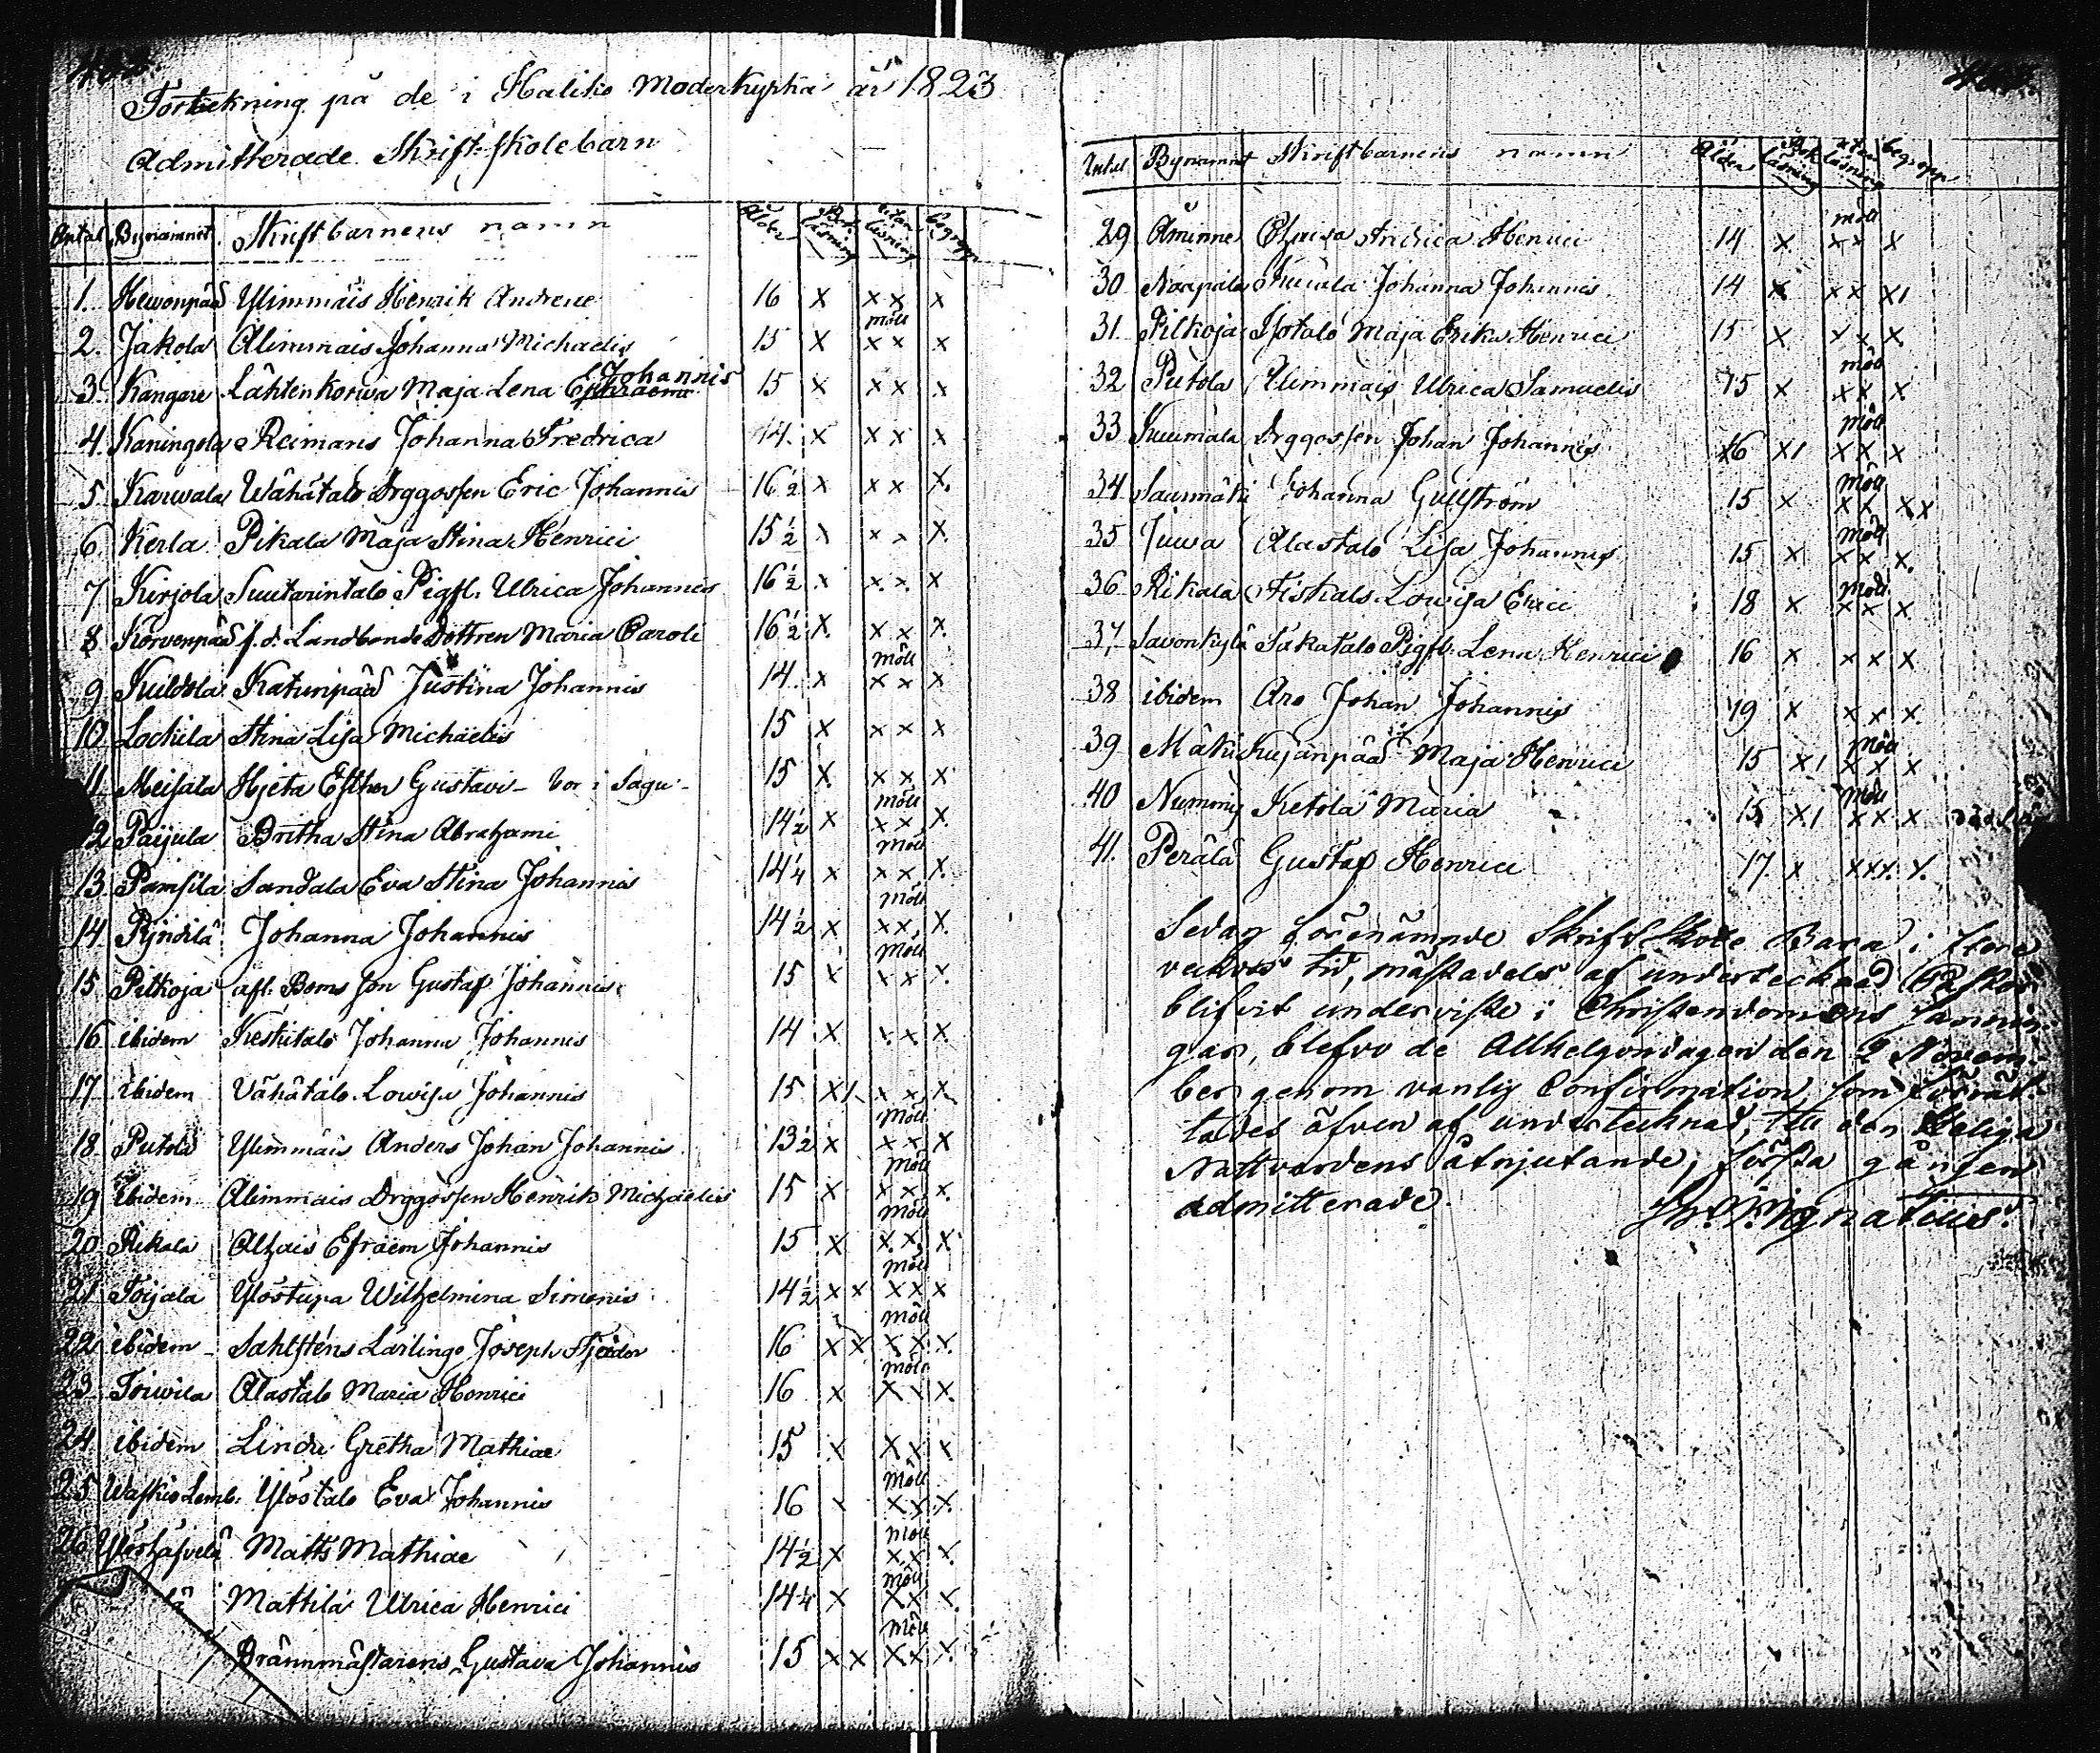 Förtekning på de i Haliko Moderkyrka år 1823
Admitterade Skrift-skolebarn
Antal Bynamnet Skriftbarnens namn Ålder Bok läsning utan läsning begrepp
1. Hewonpää Ylimmäis Henrik Andreae 16 x x x x
2. Jakola Alimmais Johanna Michaelis 15 x möll x x x
3. Kangare Lähtenkorwa Maja Lena Ephraemi Johannis 15 x x x x
4. Kaningola Reimans Johanna Fredrica 14. x x x x
5 Karwala Wähätalo Drggossen Eric Johannis 16 1/2 x x x x.
6. Kerla Pikala Maja Stina Henrici 15 1/2 x x x x.
7 Kirjola Suutarintalo Pigfl. Ulrica Johannis 16 1/2 x x. x. x
8 Korvenpää f. d. Landbonde Dottren Maria Caroli 16 1/2 x. x x x.
9 Kuildola Katunpää Justina Johannis 14. x möll x x x
10. Lochila Stina Lisa Michaelis 15 x x x x
11. Meisala Hjeta Esther Gustavi - bor i Sagu - 15 x. x x x
12 Paijula Britha Stina Abrahami 14 1/2 x möll x x x.
13. Pamsila Sandala Eva Stina Johannis 14 1/4 x möll x x x.
14. Rÿndilä Johanna Johannis 14 1/2 x möll x x. x.
15. Pitkoja afl. Boms son Gustaf Johannis 15 x möll x x x.
16. ibidem Keskitalo Johanna Johannis 14 x x x x
17. ibidem Vähätalo Lowisa Johannis 15 x1 x x x
18. Putola Ylimmäis Anders Johan Johannis 13 1/2 x möll x x x
19 ibidem Alimmais Drggossen Henrik Michaelis 15 x möll x x x.
20. Rikala Alhais Efraem Johannis 15 x möll x x. x
21. Toijala Ylöstupa Wilhelmina Simonis 14 1/2 x x möll x x x
22. ibidem - Sahlsténs Lärlinge Joseph 16 x x möll x x x.
23. Toiwila Alastalo Maria Henrici 16 x möll x x x.
24. ibidem Linda Gretha Mathiae 15 x x x x
25 Waskio Lemb. Ylöstalo Eva Johannis 16 x möll x x x.
26 Matts Mathiae 14 1/2 x möll x x x.
ä Mattila Ulrica Henrici 14 1/4 x möll x x x.
Brännmästarens Gustava Johannis 15 x x möll x x x.
Antal Bynamnet Skriftbarnens namn Ålder Bok läsning utan läsning begrepp
29 Åminne Henrici 14 x möll x x x
30 Naapala Johanna Johannis 14 x x x x1
31. Pitkoja Isotalo Maja Erika Henrici 15 x x x x
32 Putola Alimmais Ulrica Samuelis 15 x möll x x x
33 Kuumala Drggossen Johan Johannis 16 x1 möll x x x
34 Saurmäki Johanna Gullström 15 x möll x x x x
35 Juwa Alastalo Lisa Johannis 15 x möll x x x.
36 Rikala Fiskals Lowisa Erici 18 x möll x x x
37, Savonkylä Sakatalo Pigfl. Lena Henrici 16 x x x x
38 ibidem Aro Johan Johannis 19 x x x x.
39 Mäki Kujanpää Maja Henrici 15 x1 möll x x x
40 Nummis Ketola Maria 15 x1 möll x x x
41. Perälä Gustaf Henrici 17. x xxx. x.
Sedan förenämnde Skrift Skole Barn i flere
veckors tid, mästadels af undertecknad Pastor
blifvit underviste i Christendomens sannin-
gar, blefvo de Allhelgondagen den 2 Novem-
ber genom vanlig Confirmation, som förrät-
tades äfven af undertecknad, till den Heliga
Nattvardens åtnjutande, första gången
admitterade.
Ignatius.